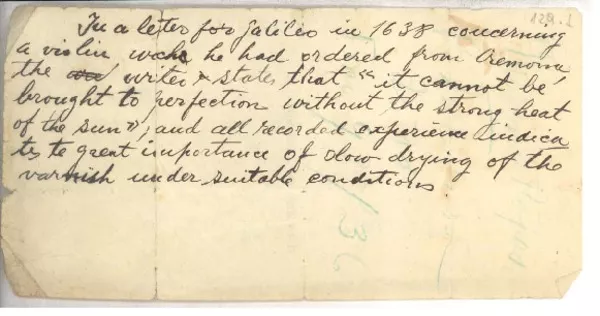 129.I
In a letter for Galileo in 1638 concerning
a violin wch he had ordered from Cremona
the writer states that "it cannot be
brought to perfection without the strong heat
of the sun"; and all recorded experience indica
ts te great importance of slow drying of the
varnish under suitable conditions
136